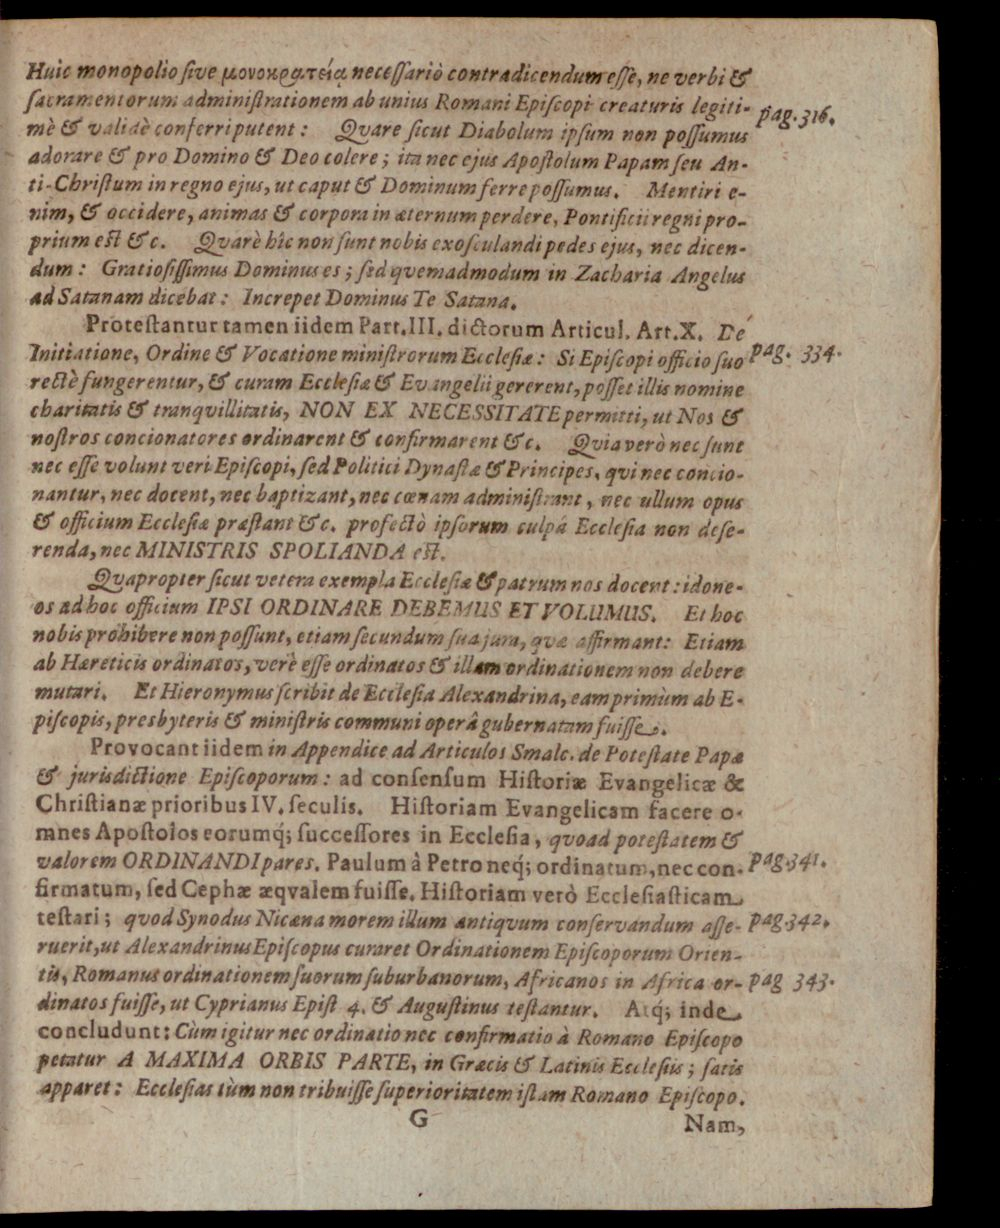 Huic monopolio ſive μονοκρατείᾳ neceſſariò contradicendum eſſe, ne verbi &
ſacramentorum adminiſtrationem ab unius Romani Epiſcopi creaturis legiti- pag. 316.
mè & validè conferri putent: Qvare ſicut Diabolum ipſum non poſſumus
adorare & pro Domino & Deo colere; ita nec ejus Apoſtolum Papam ſeu An-
ti-Chriſtum in regno ejus, ut caput & Dominum ferre poſſumus. Mentiri e-
nim, & occidere, animas & corpora in æternum perdere, Pontificii regni pro-
prium eſt &c. Qvarè hîc non ſunt nobis exoſculandi pedes ejus, nec dicen-
dum: Gratioſiſſimus Dominus es; ſed qvemadmodum in Zacharia Angelus
ad Satanam dicebat: Increpet Dominus Te Satana.
Proteſtantur tamen iidem Part. III. dictorum Articul. Art. X. De
Initiatione, Ordine & Vocatione miniſtrorum Eccleſiæ: Si Epiſcopi officio ſuo pag. 334.
rectè fungerentur, & curam Eccleſiæ & Evangelii gererent, poſſet illis nomine
charitatis & tranqvillitatis, NON EX NECESSITATE permitti, ut Nos &
noſtros concionatores ordinarent & confirmarent &c. Qvia verò nec ſunt
nec eſſe volunt veri Epiſcopi, ſed Politici Dynaſtæ & Principes, qvi nec concio-
nantur, nec docent, nec baptizant, nec cœnam adminiſtrant, nec ullum opus
& officium Eccleſiæ præſtant &c. profectò ipſorum culpâ Eccleſia non deſe-
renda, nec MINISTRIS SPOLIANDA eſt.
Qvapropter ſicut vetera exempla Eccleſiæ & patrum nos docent: idone-
os ad hoc officium IPSI ORDINARE DEBEMUS ET VOLUMUS. Et hoc
nobis prohibere non poſſunt, etiam ſecundum ſua jura, qvæ affirmant: Etiam
ab Hæreticis ordinatos, verè eſſe ordinatos & illam ordinationem non debere
mutari. Et Hieronymus ſcribit de Eccleſia Alexandrina, eam primùm ab E-
piſcopis, presbyteris & miniſtris communi operâ gubernatam fuiſſe.
Provocant iidem in Appendice ad Articulos Smalc. de Poteſtate Papæ
& jurisdictione Epiſcoporum: ad conſenſum Hiſtoriæ Evangelicæ &
Chriſtianæ prioribus IV. ſeculis. Hiſtoriam Evangelicam facere o-
mnes Apoſtolos eorumq́; ſucceſſores in Eccleſia, quoad poteſtatem &
valorem ORDINANDI pares. Paulum à Petro neq́; ordinatum, nec con- pag. 341.
firmatum, ſed Cephæ æqvalem fuiſſe. Hiſtoriam verò Eccleſiaſticam
teſtari; qvod Synodus Nicæna morem illum antiqvum conſervandum aſſe- pag. 342.
ruerit, ut Alexandrinus Epiſcopus curaret Ordinationem Epiſcoporum Orien-
tis, Romanus ordinationem ſuorum ſuburbanorum, Africanos in Africa or- pag 343.
dinatos fuiſſe, ut Cyprianus Epiſt 4. & Auguſtinus teſtantur. Atq́; inde
concludunt: Cùm igitur nec ordinatio nec confirmatio à Romano Epiſcopo
petatur A MAXIMA ORBIS PARTE, in Græcis & Latinis Eccleſiis; ſatis
apparet: Eccleſias tùm non tribuiſſe ſuperioritatem iſtam Romano Epiſcopo.
G Nam,